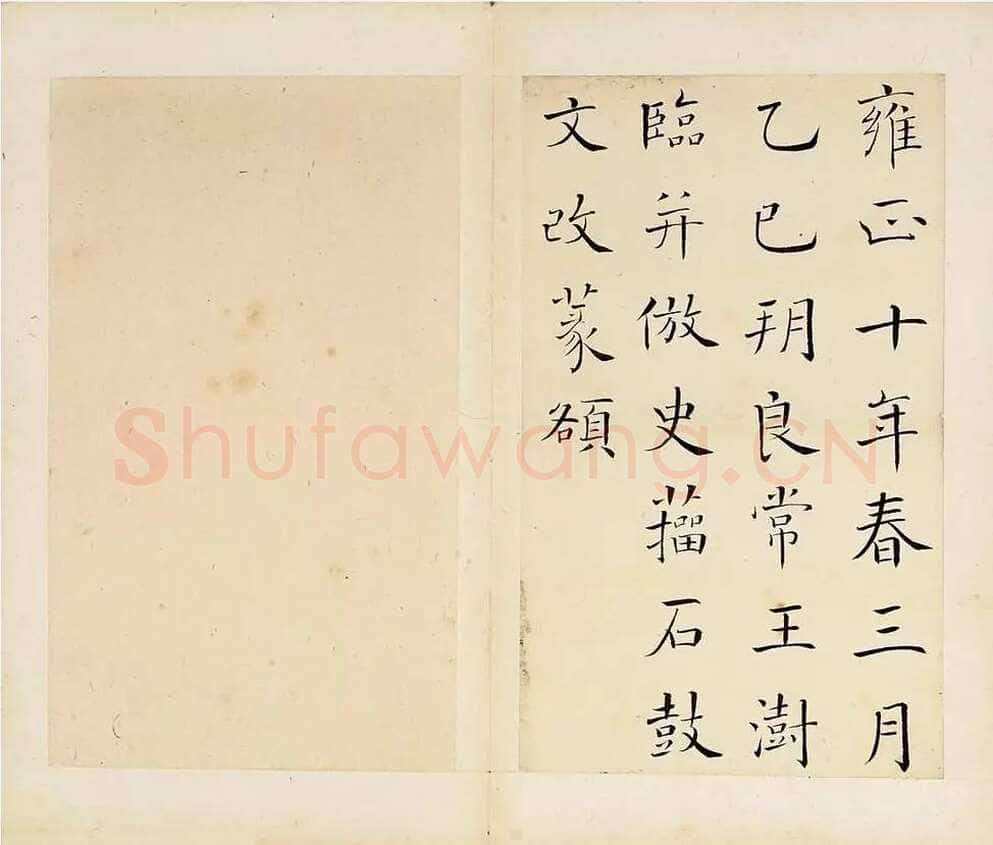 雍正十年春三月
乙巳朔良常王澍
臨并倣史籕石鼓
文改篆額
Shufawang.CN